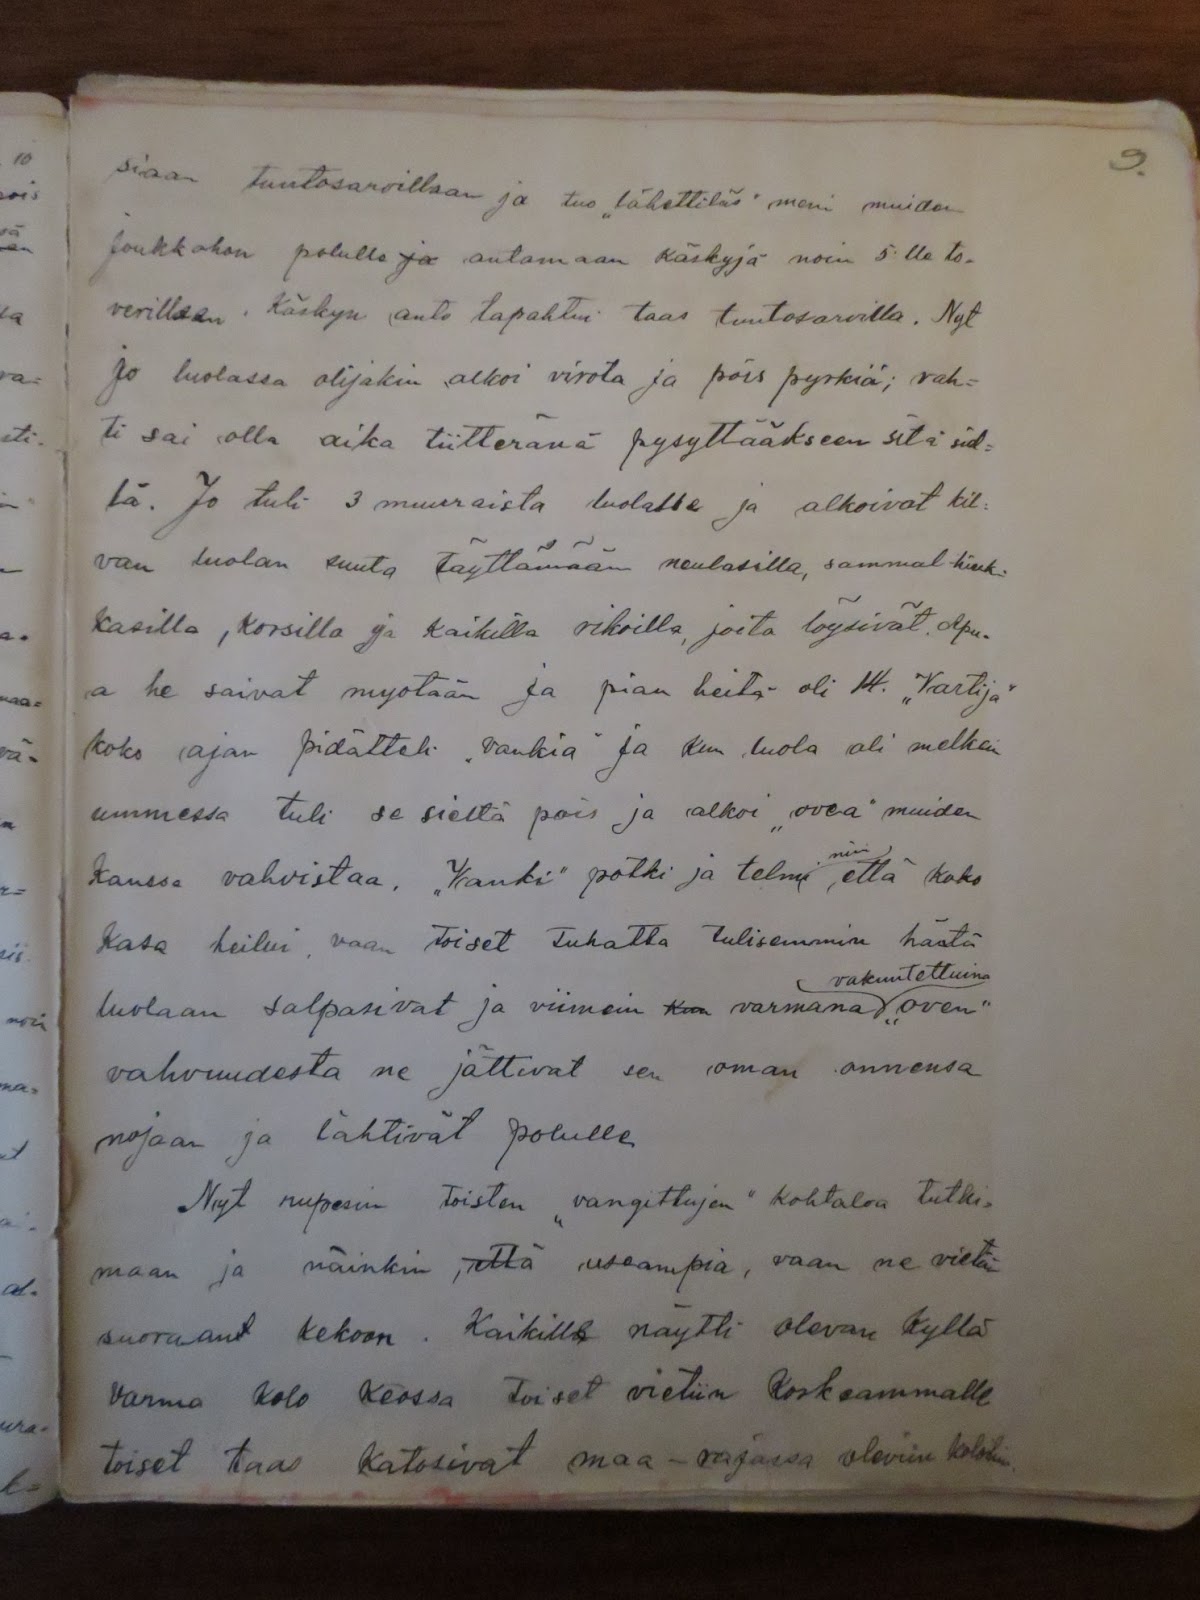 9.
siaan tuntosarvillaan ja tuo „lähettiläs" meni muiden
joukkohon polulle ja antamaan käskyjä noin 5:lle to-
verillaan. Käskyn anto tapahtui taas tuntosarvilla. Nyt
jo luolassa olijakin alkoi virota ja pois pyrkiä; vah=
ti sai olla aika tiitteränä pysyttääkseen sitä siel=
lä. Jo tuli 3 muuraista luolalle ja alkoivat kil=
van luolan suuta täyttämään neulasilla, sammal-hiuk=
kasilla, korsilla ja kaikilla rikoilla, joita löysivät. Apu-
a he saivat myötään ja pian heitä oli 14. „Vartija"
koko ajan pidätteli „vankia" ja kun luola oli melkein
ummessa tuli se sieltä pois ja alkoi „ovea" muiden
kanssa vahvistaa. „Vanki" potki ja telmi niin, että koko
kasa heilui, vaan toiset tuhatta tulisemmin häätä
luolaan salpasivat ja viimein kun varmana vakuutettuina „oven"
vahvuudesta ne jättivät sen oman onnensa
nojaan ja lähtivät polulle
Nyt rupesin toisten „vangittujen" kohtaloa tutki-
maan ja näinkin, että useampia, vaan ne vietiin
suoraant kekoon. Kaikille näytti olevan kyllä
varma kolo keossa toiset vietiin korkeammalle
toiset taas katosivat maa-rajassa oleviin koloihin.
10